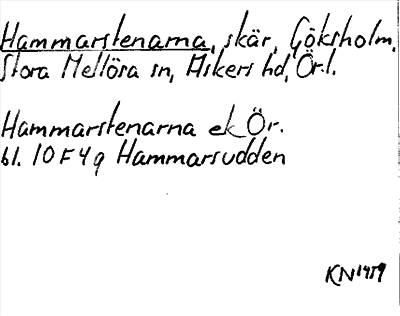 Hammarstenarna, skär, Göksholm,
Stora Mellösa sn, Askers hd, Ör.l.
Hammarstenarna ek Ör.
bl. 10 F 4 g Hammarsudden